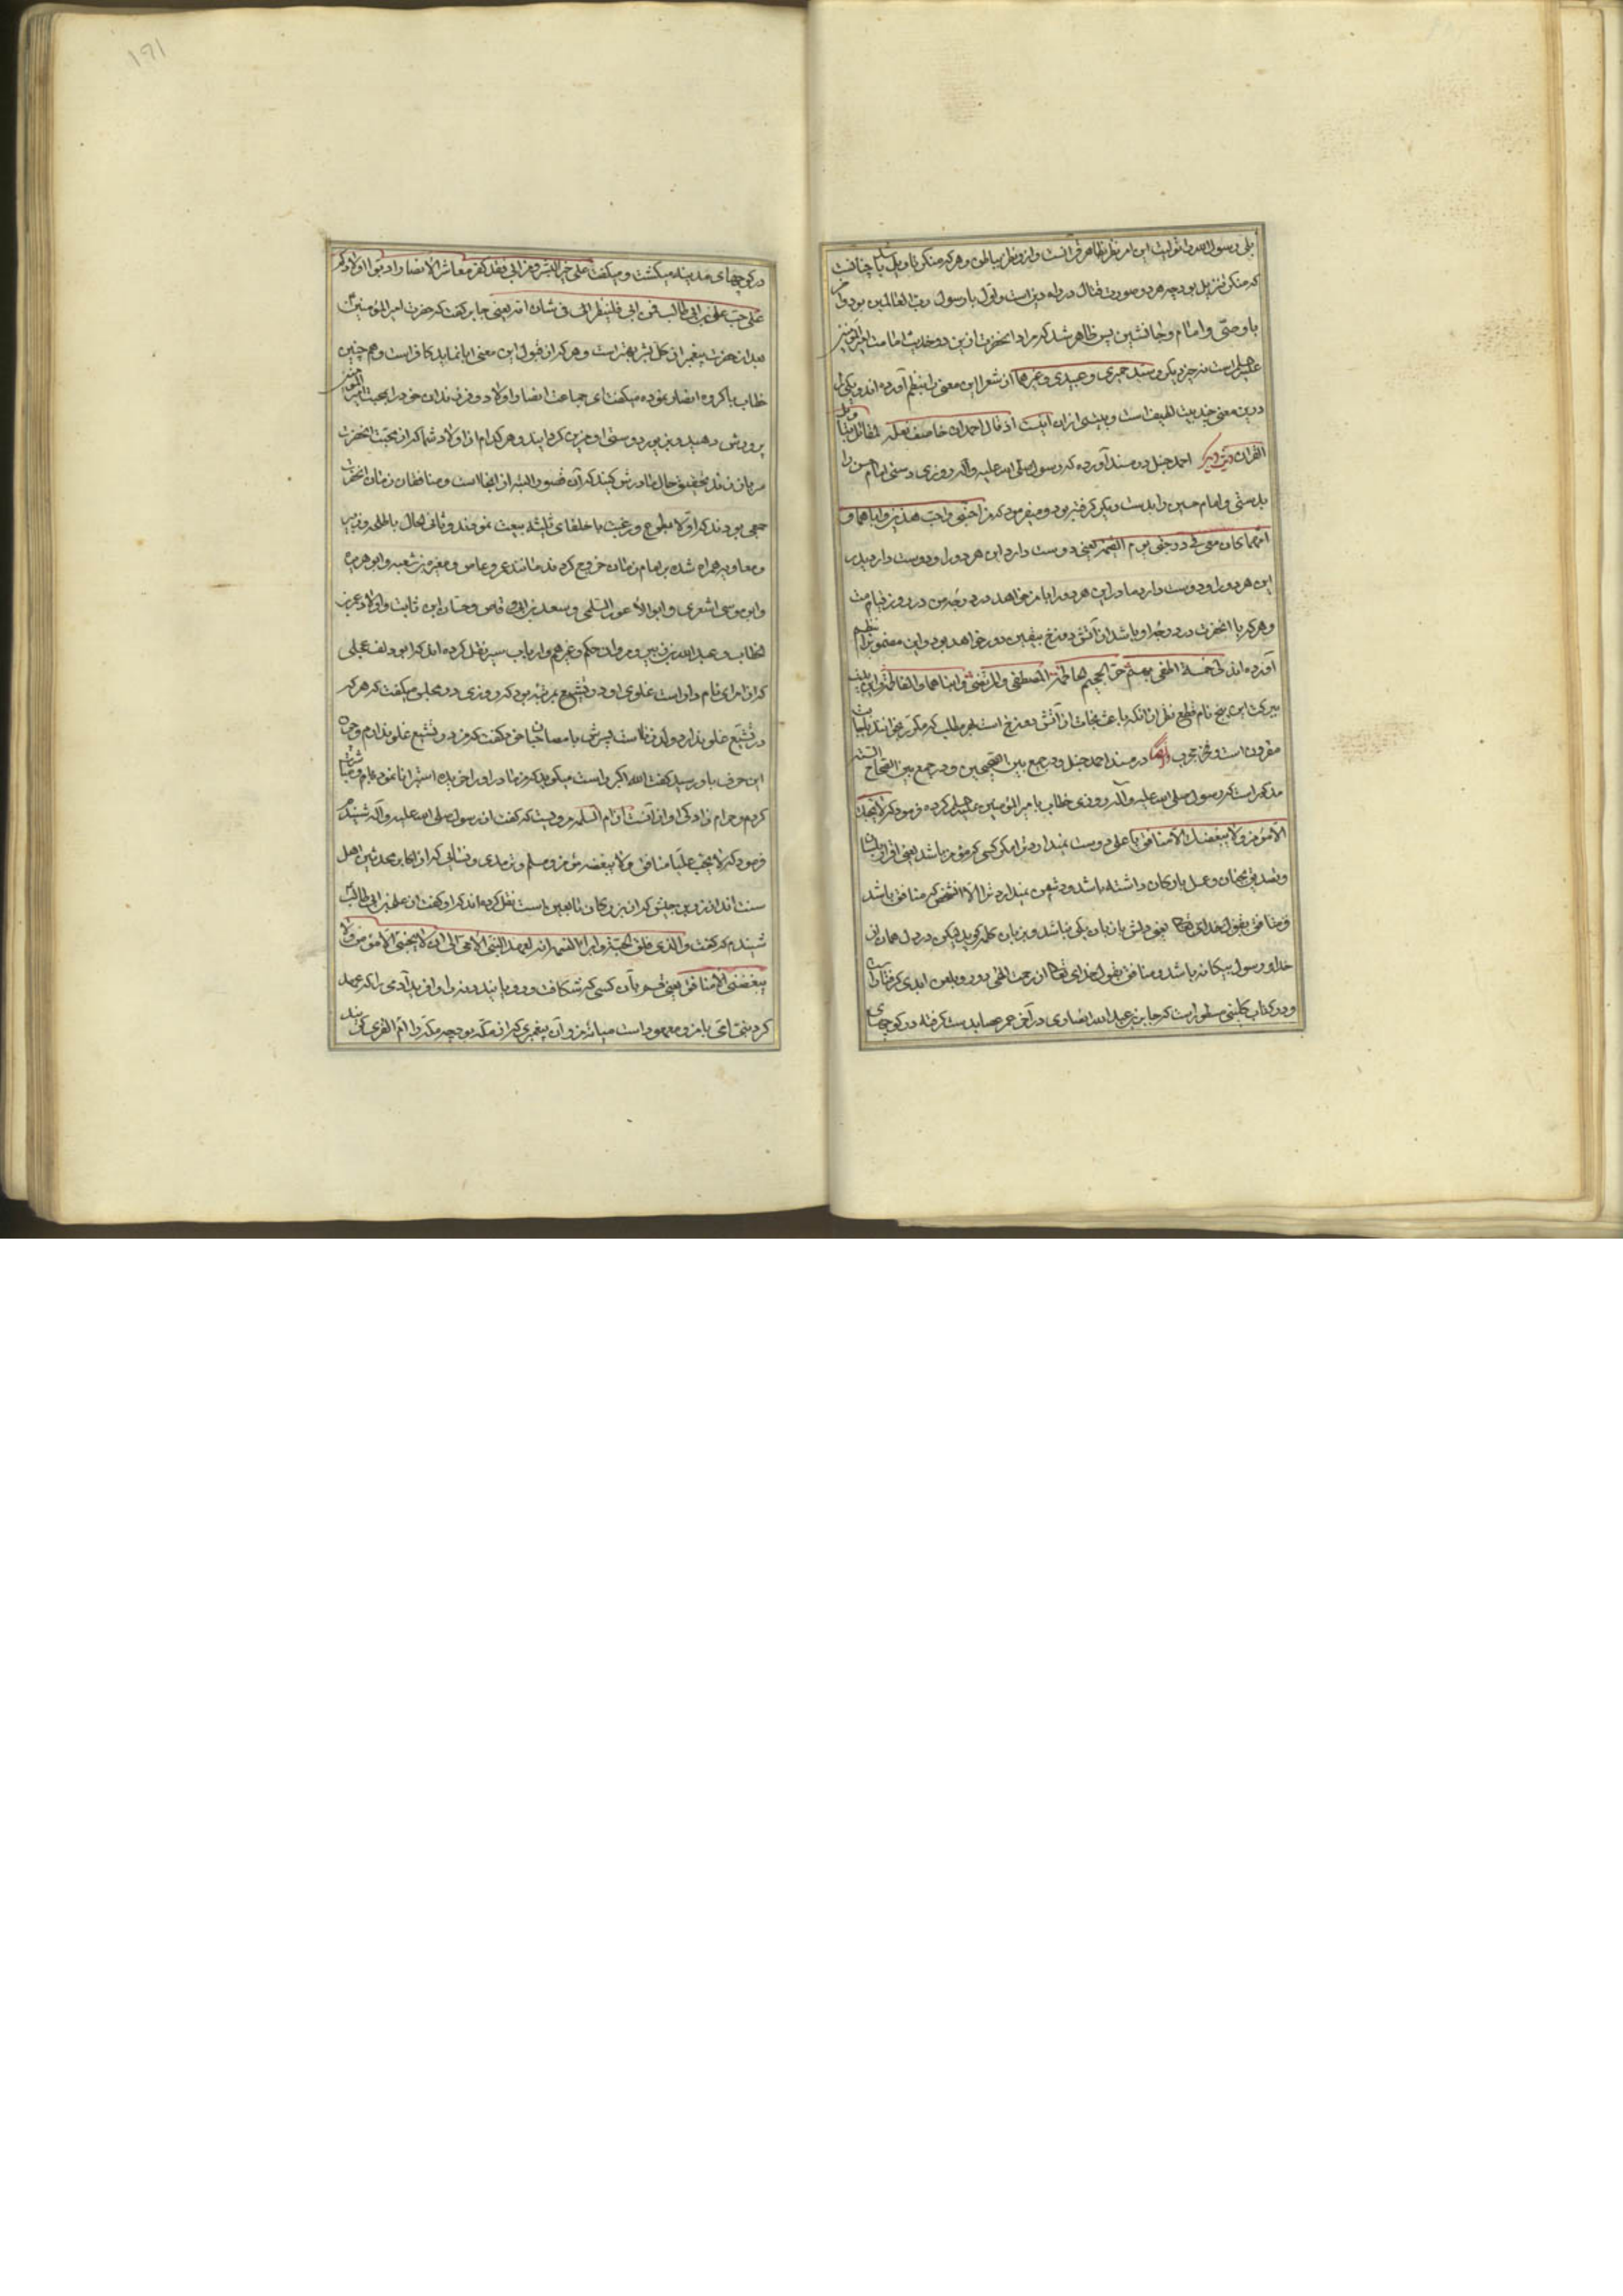 بلی رسول الله را تولیت این امر تنزل بظاهر قرآنست و این تنزل بباطن و هر که منکر تاویل باشد چنانست
که منکر تنزیل بود چه هر دو صورت قتال در راه دین است و اول با رسول رب العالمین بود و آخر
با وصی و امام و جانشین پس ظاهر شد که مراد آنحضرت ازین دو حدیث امامت امیر المؤمنین
علیه السلام است نه چیز دیگر و سید حمیری و عبیدی و غیرهما از شعرا این معنی را بنظم آورده اند و یکی را
درین معنی چند بیت لطیف است و بیتی از آن اینست اذ قال احمد ان خاصف نعله لمقاتل بتاویل
القرآن دیگر احمد حنبل در مسند آورده که رسول صلی الله علیه و آله روزی دستی امام حسن را
بدستی و امام حسین را بدست دیگر گرفته بود و میفرمود که من احبنی و احب هذین و اباهما و
امهما کان معی فی درجتی یوم القیمة یعنی دوست دارد این هر دو را و دوست دارد پدر
این هر دو را و دوست دارد مادر این هر دو را با من خواهد در درجه من در روز قیامت
و هر که با آنحضرت در درجه او باشد از آتش دوزخ بیقین دور خواهد بود و این مضمون را بنظم
آورده اند لی خمسة اطفی بهم حر الجحیم الحاطمة المصطفی و المرتضی و ابناهما و الفاطمة و این بیت
ببرکت این پنج نام قطع نظر از آنکه باعث نجات از آتش دوزخ است بهر مطلب که مکرر بخوانند باجابت
مقرونست و مجرب ایضا در مسند احمد حنبل و در جمع بین الصحیحین و در جمع بین الصحاح الستة
مذکور است که رسول صلی الله علیه و آله روزی خطاب بامیر المؤمنین علیه السلام کرده فرمود که لا یحبک
الا مؤمن و لا یبغضک الا منافق یا علی دوست نمیدارد ترا مگر کسی که مؤمن باشد یعنی اقرار بلسان
و تصدیق بجنان و عمل بارکان داشته باشد و دشمن نمیدارد ترا الا آنشخص که منافق باشد
و منافق بقول خدای تعالی یعنی دلش با زبان یکی نباشد و بزبان کلمه گوید لیکن در دل همان از
خدا و رسول بیگانه باشد و منافق بقول خدای تعالی از رحمت الهی دور و بلعن ابدی گرفتار است
و در کتاب کلینی مسطور است که جابر بن عبد الله انصاری در آخر عمر عصا بدست گرفته در کوچهای
در کوچهای مدینه میگشت و میگفت علی خیر البشر و من ابی فقد کفر معاشر الانصار ادبوا اولادکم
علی حب علی بن ابی طالب فمن ابی فلینظر الی فی شان امه یعنی جابر گفت که حضرت امیر المؤمنین
بعد از حضرت پیغمبر از کل بشر بهتر است و هر که از قبول این معنی ابا نماید کافر است و همچنین
خطاب با گروه انصار نموده میگفت ای جماعت انصار اولاد و فرزندان خود را بمحبت امیر المؤمنین
پرورش دهید و بزیور دوستی او مزین گردانید و هر کدام از اولاد شما که از محبت آنحضرت
سر باز زند تحقیق حال مادرش کنید که آن قصور البته از آنجا است و منافقان زمان آنحضرت
جمعی بودند که اولا بطوع و رغبت با خلفای ثلثه بیعت نمودند و ثانی الحال با طلحه و زبیر
و معاویه همراه شده بر امام زمان خروج کردند مانند عمرو عاص و مغیره بن شعبه و ابو هریره
و ابو موسی اشعری و ابو الاعور السلمی و سعد بن ابی وقاص و حسان ابن ثابت و اولاد عمر بن
الخطاب و عبد الله بن زبیر و مروان حکم و غیرهم و ارباب سیر نقل کرده اند که ابو دلف عجلی
که از امرای نام دار است غلوی او در تشیع بمرتبه بود که روزی در مجلس میگفت که هر که
در تشیع غلو ندارد ولد زناست پسرش با مصاحبان خود گفت که من در تشیع غلو ندارم و چون
این حرف باو رسید گفت الله اکبر راست میگوید که من مادر او را خریده استبرا نانموده با او مباشرت
کردم و حرام زادگی او از آنست و از ام السلمه مرویست که گفت از رسول صلی الله علیه و آله شنیدم که
فرمود که لا یحب علیا منافق و لا یبغضه مؤمن و مسلم و ترمذی و نسائی که از اکابر محدثین اهل
سنت اند از زر بن حبیش که از بزرگان تابعین است نقل کرده اند که او گفت از علی بن ابی طالب
شنیدم که گفت و الذی فلق الحبة و برأ النسمة انه لعهد النبی الامی الی ان لا یحبنی الا مؤمن و لا
یبغضنی الا منافق یعنی قسم بآن کسی که شکافت و رویانید دانه را و آفرید آدمی را که عهد
کرد نبی امی با من و معهود است میانه من و آن پیغمبری که از مکه بود چه مکه را ام القری گویند
۱۹۱